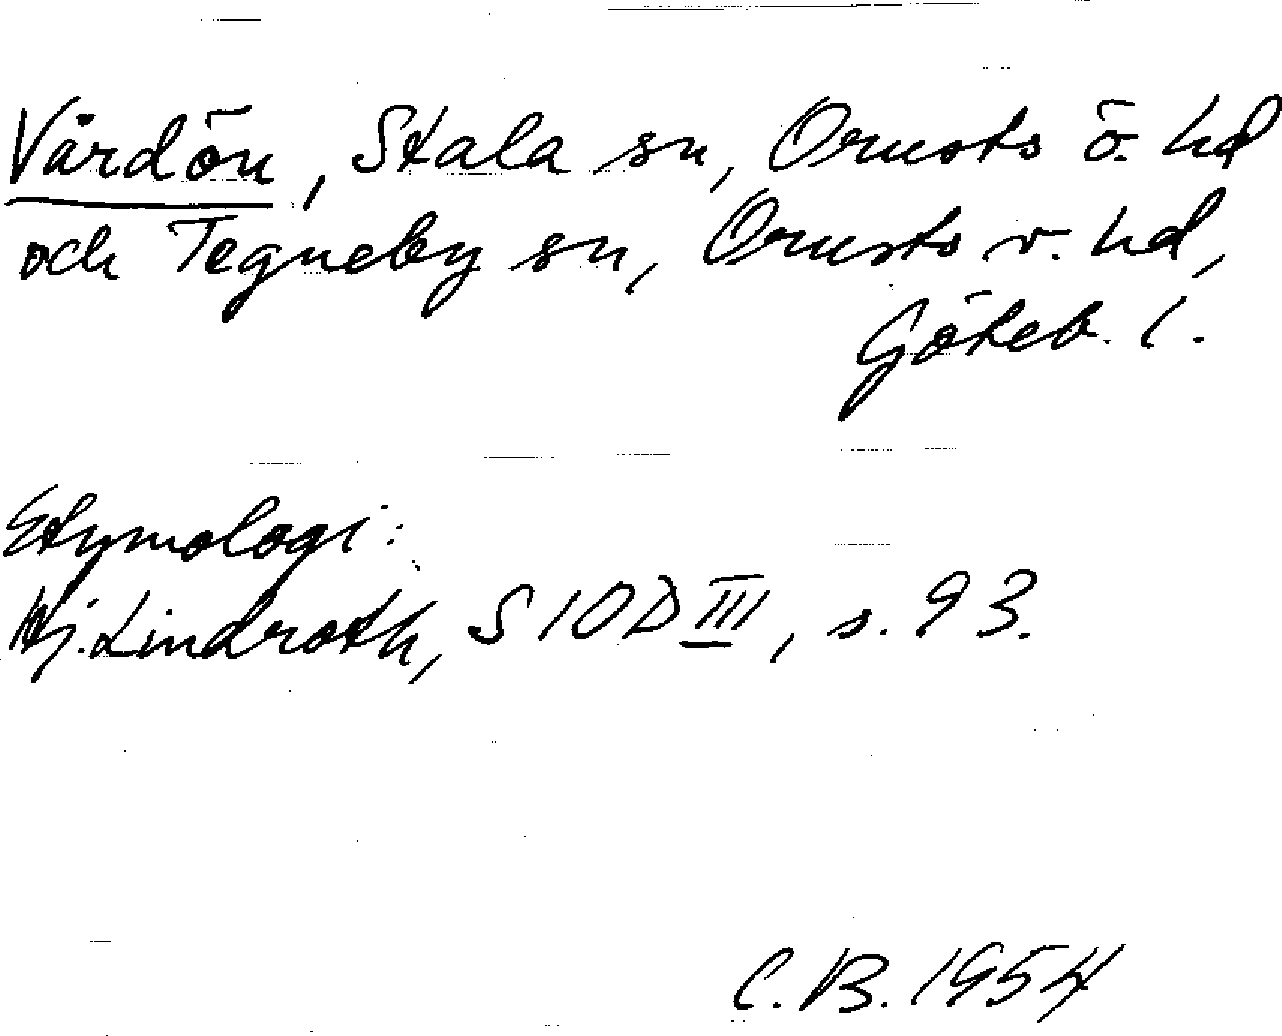 Vårdön, Stala sn, Orusts ö. hd
och Tegneby sn, Orusts v. hd,
Göteb. l.
Etymologi:
Hj. Lindroth, SIOD III, s. 93.
C.B. 1954